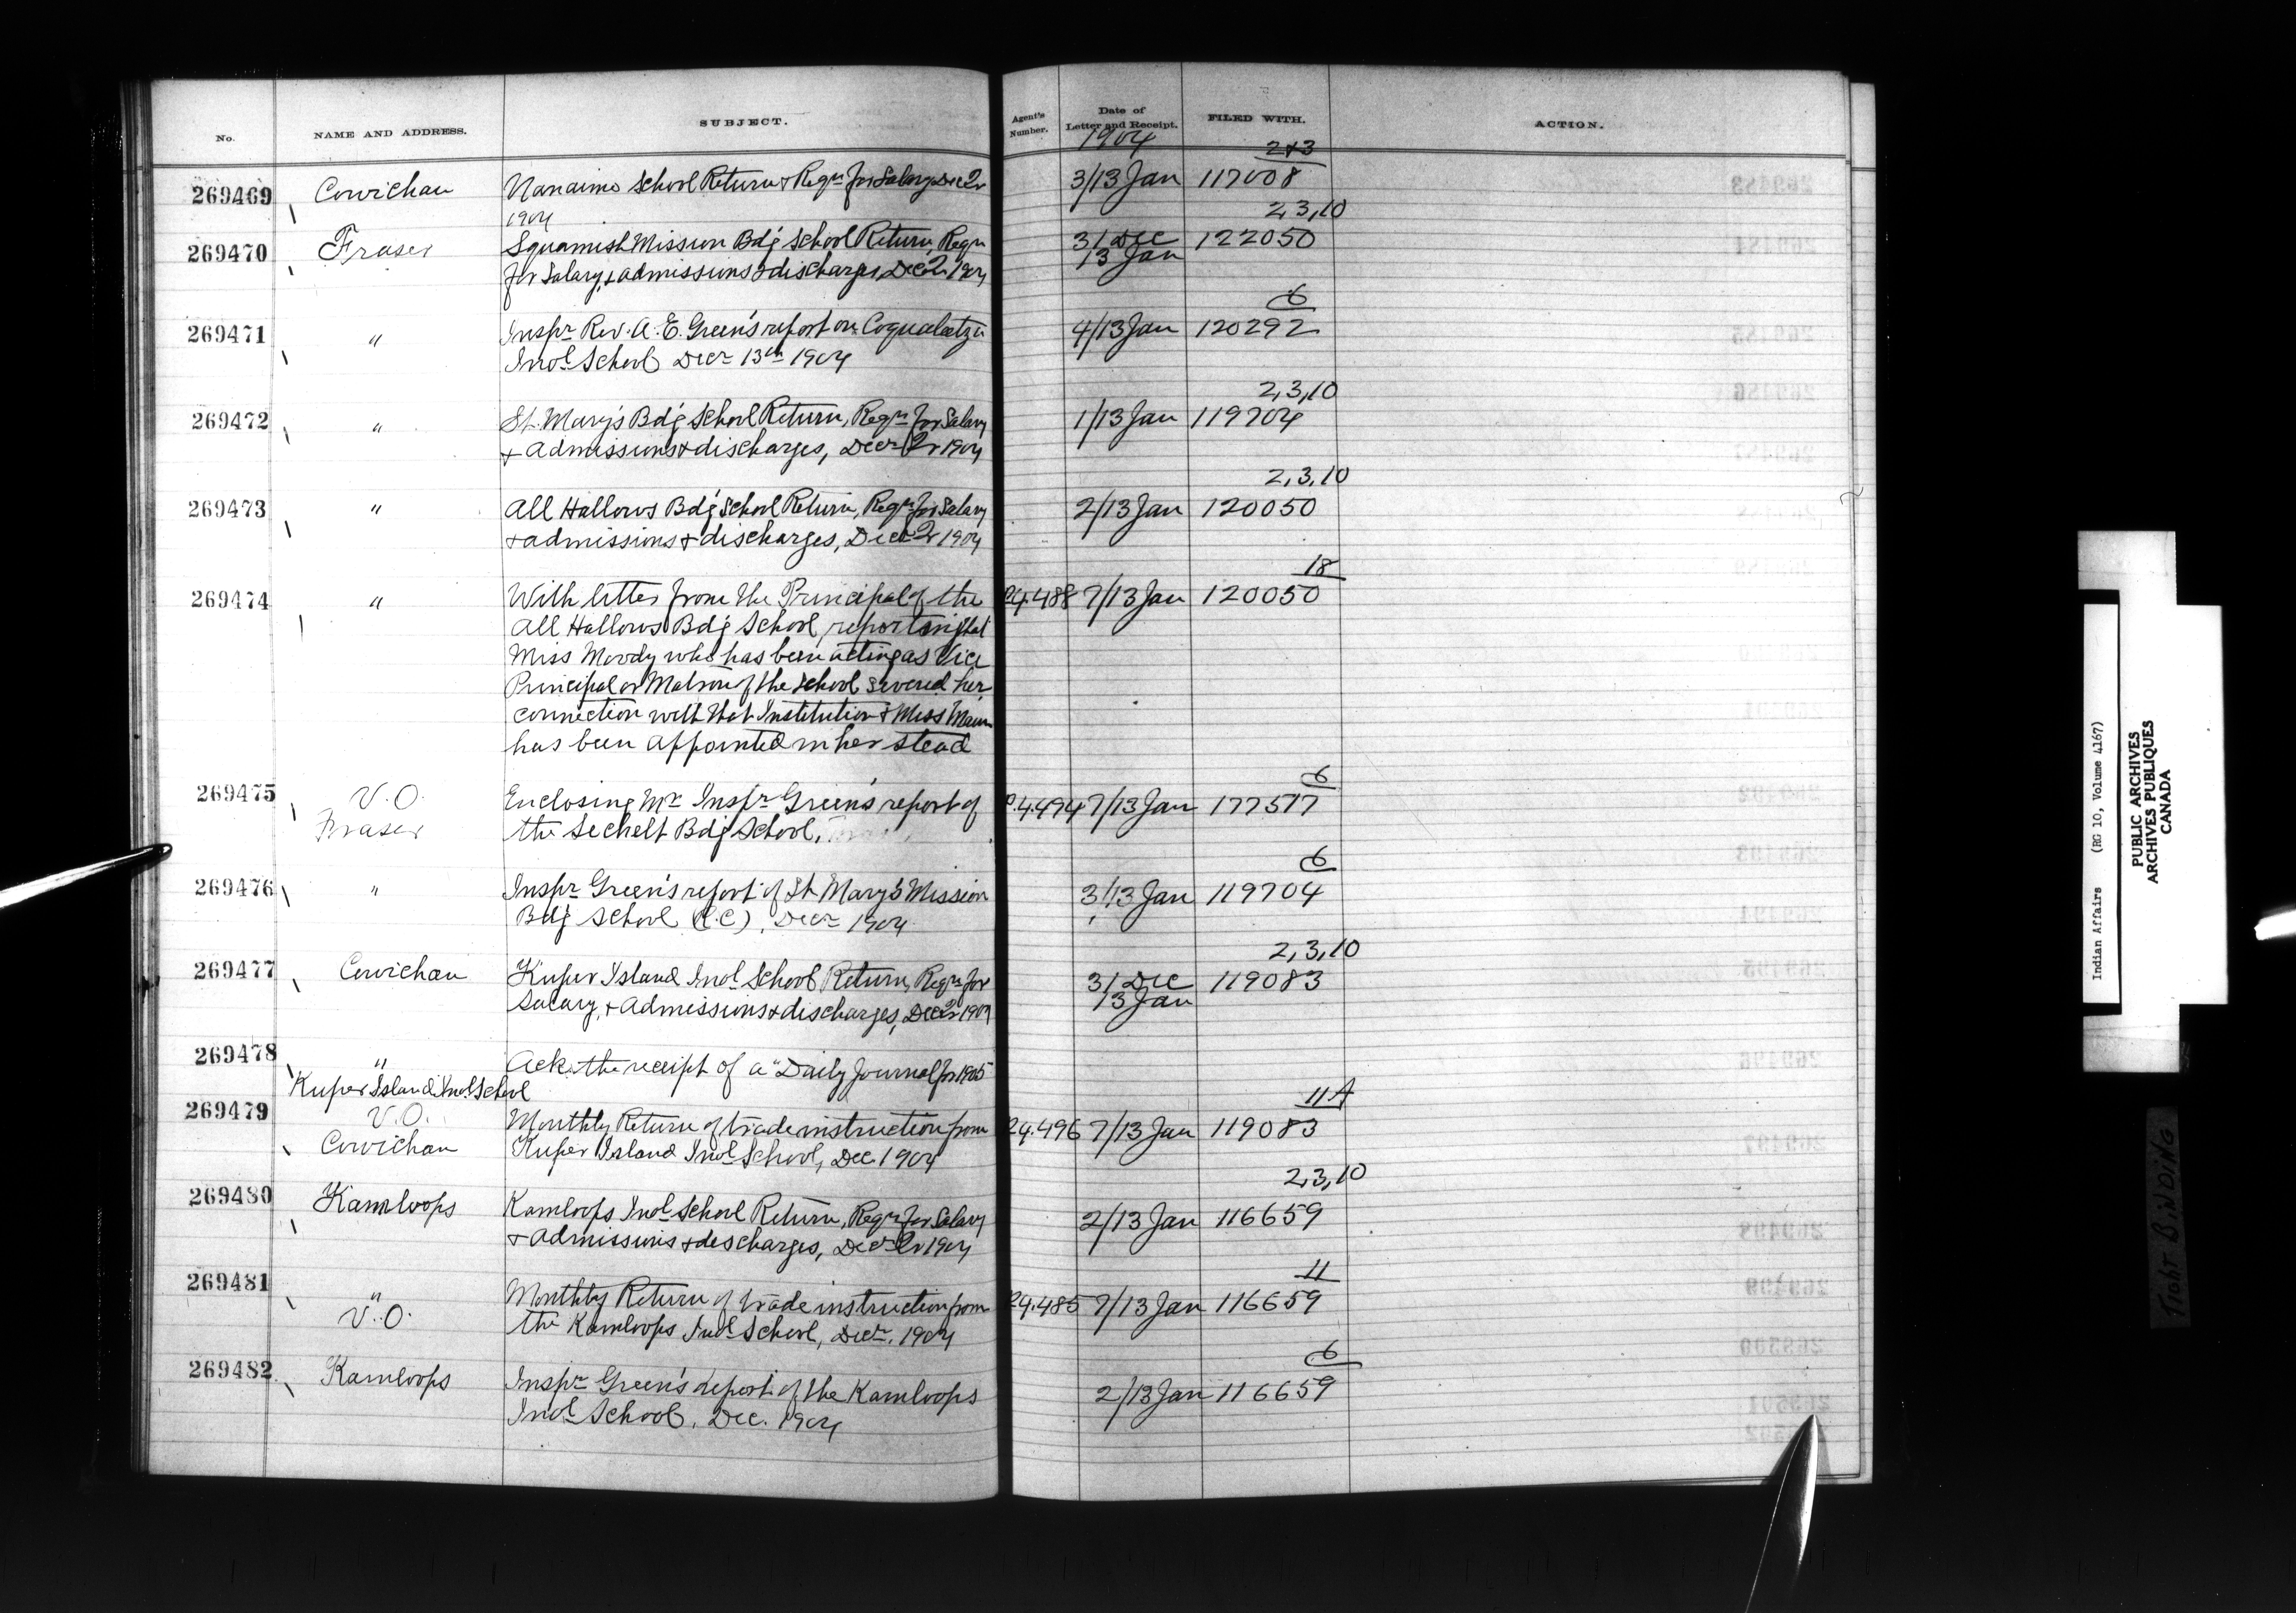 No.
NAME AND ADDRESS.
SUBJECT.
Agent's Number.
Date of Letter and Receipt.
FILED WITH.
ACTION.
1904
2+3
269469 Cowichan Nanaimo School Return & Reqn for Salary Dec 3/13 Jan 117008
1904
2,3,10
269470 Fraser Squamish Mission Bdg School Return, Reqn 31 Dec 122050
for Salary, & admissions & discharges, Dec 1904 13 Jan
6
269471 " Inspr Rev. A. E. Green's report on Coqualeetza 4/13 Jan 120292
Indl School Decr 13th 1904
2,3,10
269472 " St. Mary's Bdg School Return, Reqn for Salary 1/13 Jan 119704
& admissions & discharges, Decr 1904
2,3,10
269473 " All Hallows Bdg School Return, Reqn for Salary 2/13 Jan 120050
& admissions & discharges, Decr 1904
18
269474 " With letter from the Principal of the 24.488 7/13 Jan 120050
All Hallows Bdg School, reporting that
Miss Moody who has been acting as Vice
Principal or Matron of the School severed her
connection with that Institution & Miss
has been appointed in her stead
6
269475 V.O. Enclosing Mr Inspr Green's report of 4.494 7/13 Jan 177517
Fraser the Sechelt Bdg School.
6
269476 " Inspr Green's report of St Mary's Mission 3/13 Jan 119704
Bdg School (R.C), Decr 1904
2,3,10
269477 Cowichan Kuper Island Indl School Return, Reqn for 31 Dec 119083
Salary, & admissions & discharges, Dec 1904 13 Jan
269478 " Ack. the receipt of a "Daily Journal for 1905
Kuper Island Indl School
11A
269479 V.O. Monthly Return of trade instruction from 24.496 7/13 Jan 119083
Cowichan Kuper Island Indl School, Dec. 1904
2,3,10
269480 Kamloops Kamloops Indl School Return, Reqn for Salary 2/13 Jan 116659
& admissions & discharges, Decr 1904
11
269481 " Monthly Return of trade instruction from 24.485 7/13 Jan 116659
V.O. the Kamloops Indl School, Decr. 1904
6
269482 Kamloops Inspr Green's report of the Kamloops 2/13 Jan 116659
Indl School, Dec. 1904
Indian Affairs (RG 10, Volume 4167)
PUBLIC ARCHIVES
ARCHIVES PUBLIQUES
CANADA
TIGHT BINDING